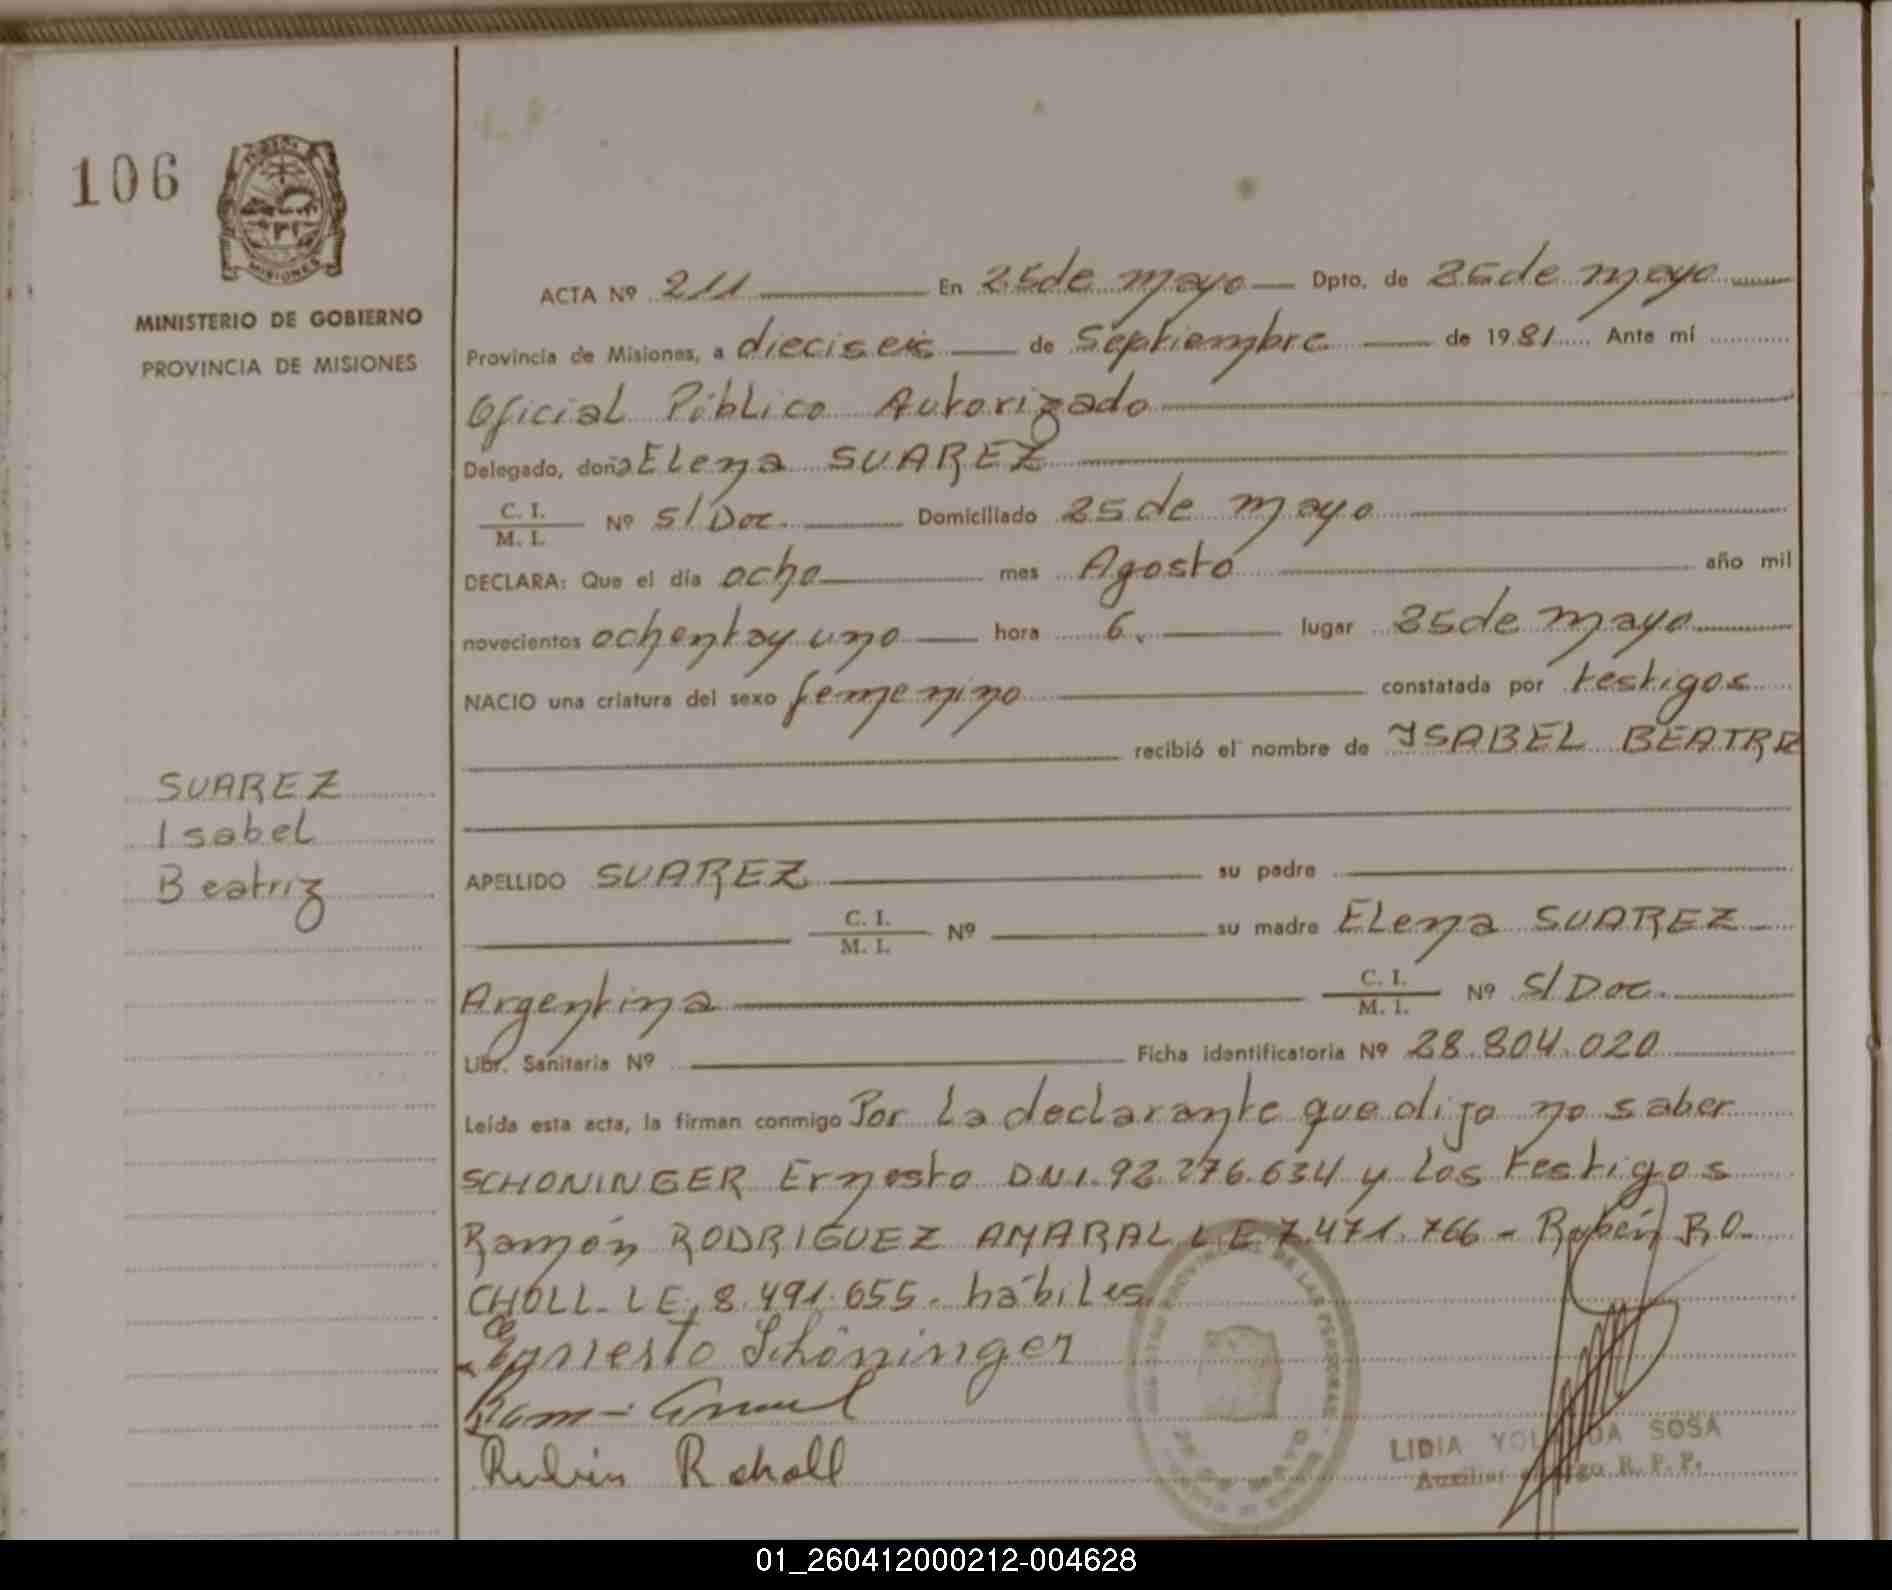 106
MISIONES
MINISTERIO DE GOBIERNO
PROVINCIA DE MISIONES
SUAREZ
Isabel
Beatriz
ACTA Nº 211 En 25 de mayo Dpto. de 25 de mayo
Provincia de Misiones, a dieciseis de Septiembre de 1981 Ante mí
Oficial Público Autorizado
Delegado, doña Elena SUAREZ
C. I.
M. I. Nº S/Doc. Domiciliado 25 de mayo
DECLARA: Que el día ocho mes Agosto año mil
novecientos ochentay uno hora 6. lugar 25 de mayo
NACIO una criatura del sexo femenino constatada por testigos
recibió el nombre de YSABEL BEATRIZ
APELLIDO SUAREZ su padre
C. I.
M. I. Nº su madre Elena SUAREZ
Argentina C. I.
M. I. Nº S/Doc.
Libr. Sanitaria Nº Ficha identificatoria Nº 28.804.020
Leída esta acta, la firman conmigo Por la declarante que dijo no saber
SCHONINGER Ernesto DNI. 92.276.634 y los testigos
Ramón RODRIGUEZ AMARAL LE 7.471.766 - Rubén RO-
CHOLL. LE. 8.491.655. hábiles
Ernesto Schöninger
Rubén Rocholl
LIDIA YOLANDA SOSA
Auxiliar a cargo R. P. P.
01_260412000212-004628